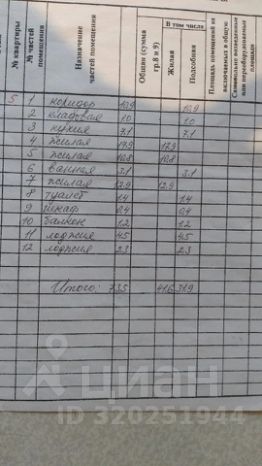 № квартиры
№ частей помещения
Назначение частей помещения
Общая (сумма гр.8 и 9)
В том числе
Жилая
Подсобная
5 1 коридор 10,9 10,9
2 кладовая 1.0 1.0
3 кухня 7.1 7.1
4 жилая 17,9 17,9
5 жилая 10,8 10,8
6 ванная 3,1 3,1
7 жилая 12,9 12,9
8 туалет 1.4 1.4
9 шкаф 0,4 0,4
10 балкон 1,2 1.2
11 лоджия 4.5 4.5
12 лоджия 2.3 2.3
Итого: 73.5 41.6 31.9
циан
ID 320251944